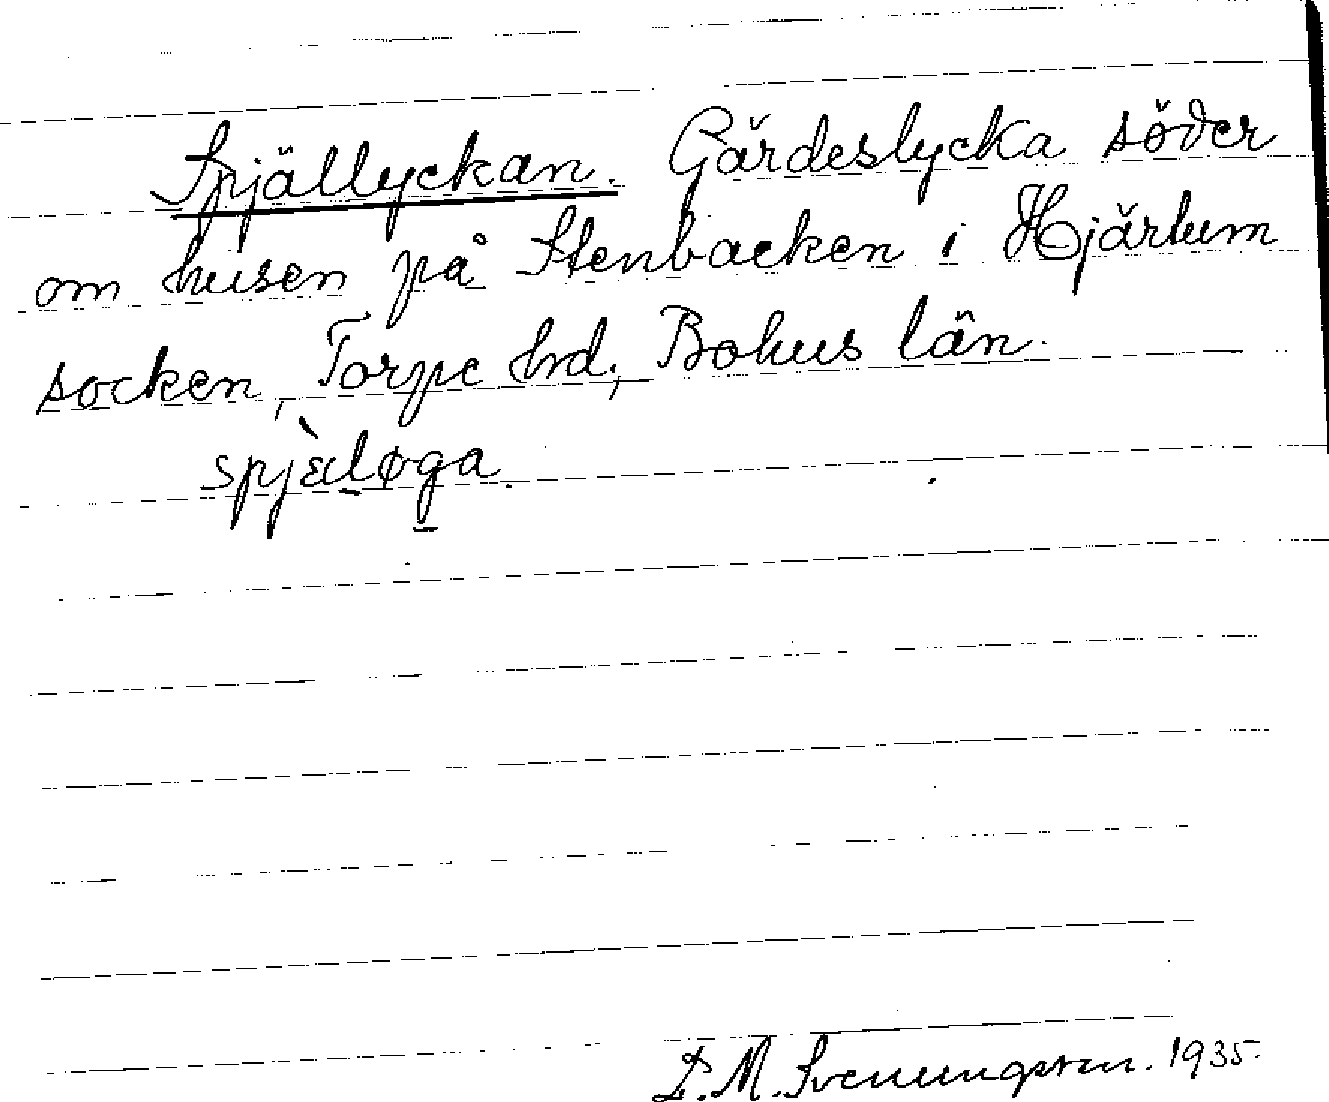 Spjällyckan. Gärdeslycka söder
om husen på Stenbacken i Hjärtum
socken, Torpe hd, Bohus län.
spjæ̀lø̱ga
D. M. Svenungsson. 1935